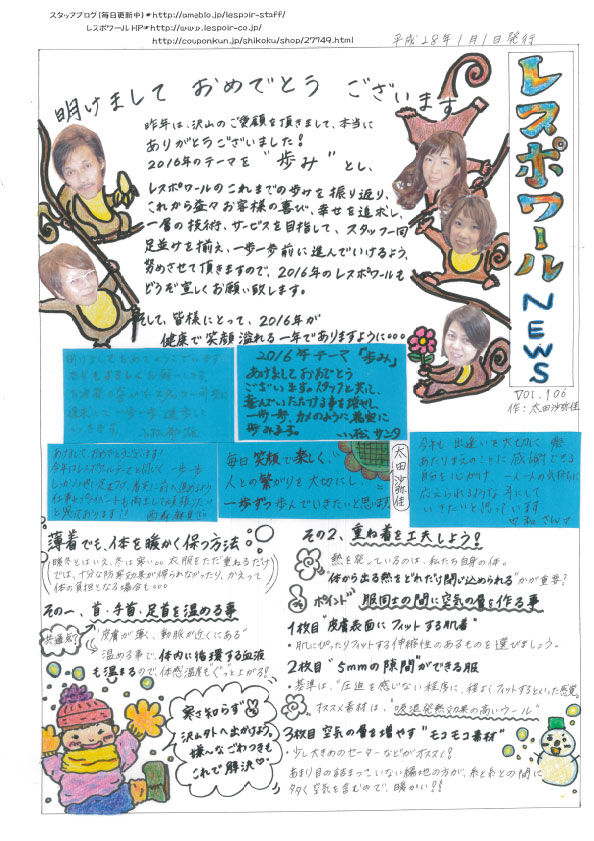 スタッフブログ(毎日更新中)☛http://ameblo.jp/lespoir-staff/
レスポワールHP☛http://www.lespoir-co.jp/
http://couponkun.jp/shikoku/shop/27949.html
平成28年1月1日発行
レスポワール NEWS
Vol.106
作:太田沙弥佳
明けまして おめでとう ございます
昨年は、沢山のご愛顧を頂きまして、本当に
ありがとうございました!
2016年のテーマを“歩み”とし、
レスポワールのこれまでの歩みを振り返り、
これから益々お客様の喜び、幸せを追求し、
一層の技術、サービスを目指して、スタッフ一同
足並みを揃え、一歩一歩前に進んでいけるよう、
努めさせて頂きますので、2016年のレスポワールも
どうぞ宜しくお願い致します。
そして、皆様にとって、2016年が
健康で笑顔溢れる一年でありますように○○○
明けましておめでとうございます
2016年テーマ「歩み」
あけましておめでとう
ございます。スタッフと共に、
喜んでいただける事を増やし、
一歩一歩、カメのように着実に
歩みます。
あけましておめでとうございます!
毎日笑顔で楽しく、
人との繋がりを大切にし、
一歩ずつ歩んでいきたいと思います。
太田沙弥佳
今年も出逢いを大切に
あたりまえのことに感謝できる
自分を心がけ、一人一人の気持ちに
応えられるような年にして
いきたいと思っています
薄着でも、体を暖かく保つ方法
暖冬とはいえ、冬は寒い○○衣服をただ重ねるだけ
では、十分な防寒効果が得られなかったり、かえって
体の負担となる場合も○○○
その一、首・手首・足首を温める事
共通点で
“皮膚が薄く、動脈が近くにある”
温める事で、体内に循環する血液
も温まるので、体感温度も“ぐっ”と上がる!
寒さ知らず
沢山外へ出かけよう。
嫌〜なごわつきも
これで解決♡
その2、重ね着を工夫しよう!
熱を発しているのは、私たち自身の体。
体から出る熱をどれだけ閉じ込められるかが重要!
ポイント 服同士の間に空気の層を作る事
1枚目“皮膚表面にフィットする肌着”
・肌にぴったりフィットする伸縮性のあるものを選びましょう。
2枚目“5mmの隙間”ができる服
・基準は、“圧迫を感じない程度に、程よくフィットするといった感覚。
オススメ素材は、“吸湿発熱効果の高いウール”
3枚目 空気の層を増やす“モコモコ素材”
・少し大きめのセーターなどがオススメ!
あまり目の詰まっていない編地の方が、糸と糸との間に
多く空気を含むので、暖かい!!